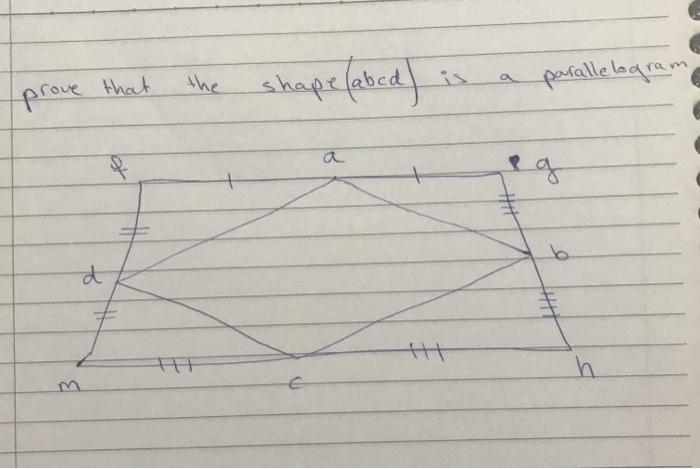 prove that the shape (abcd) is a parallelogram
f a g
d b
m c h